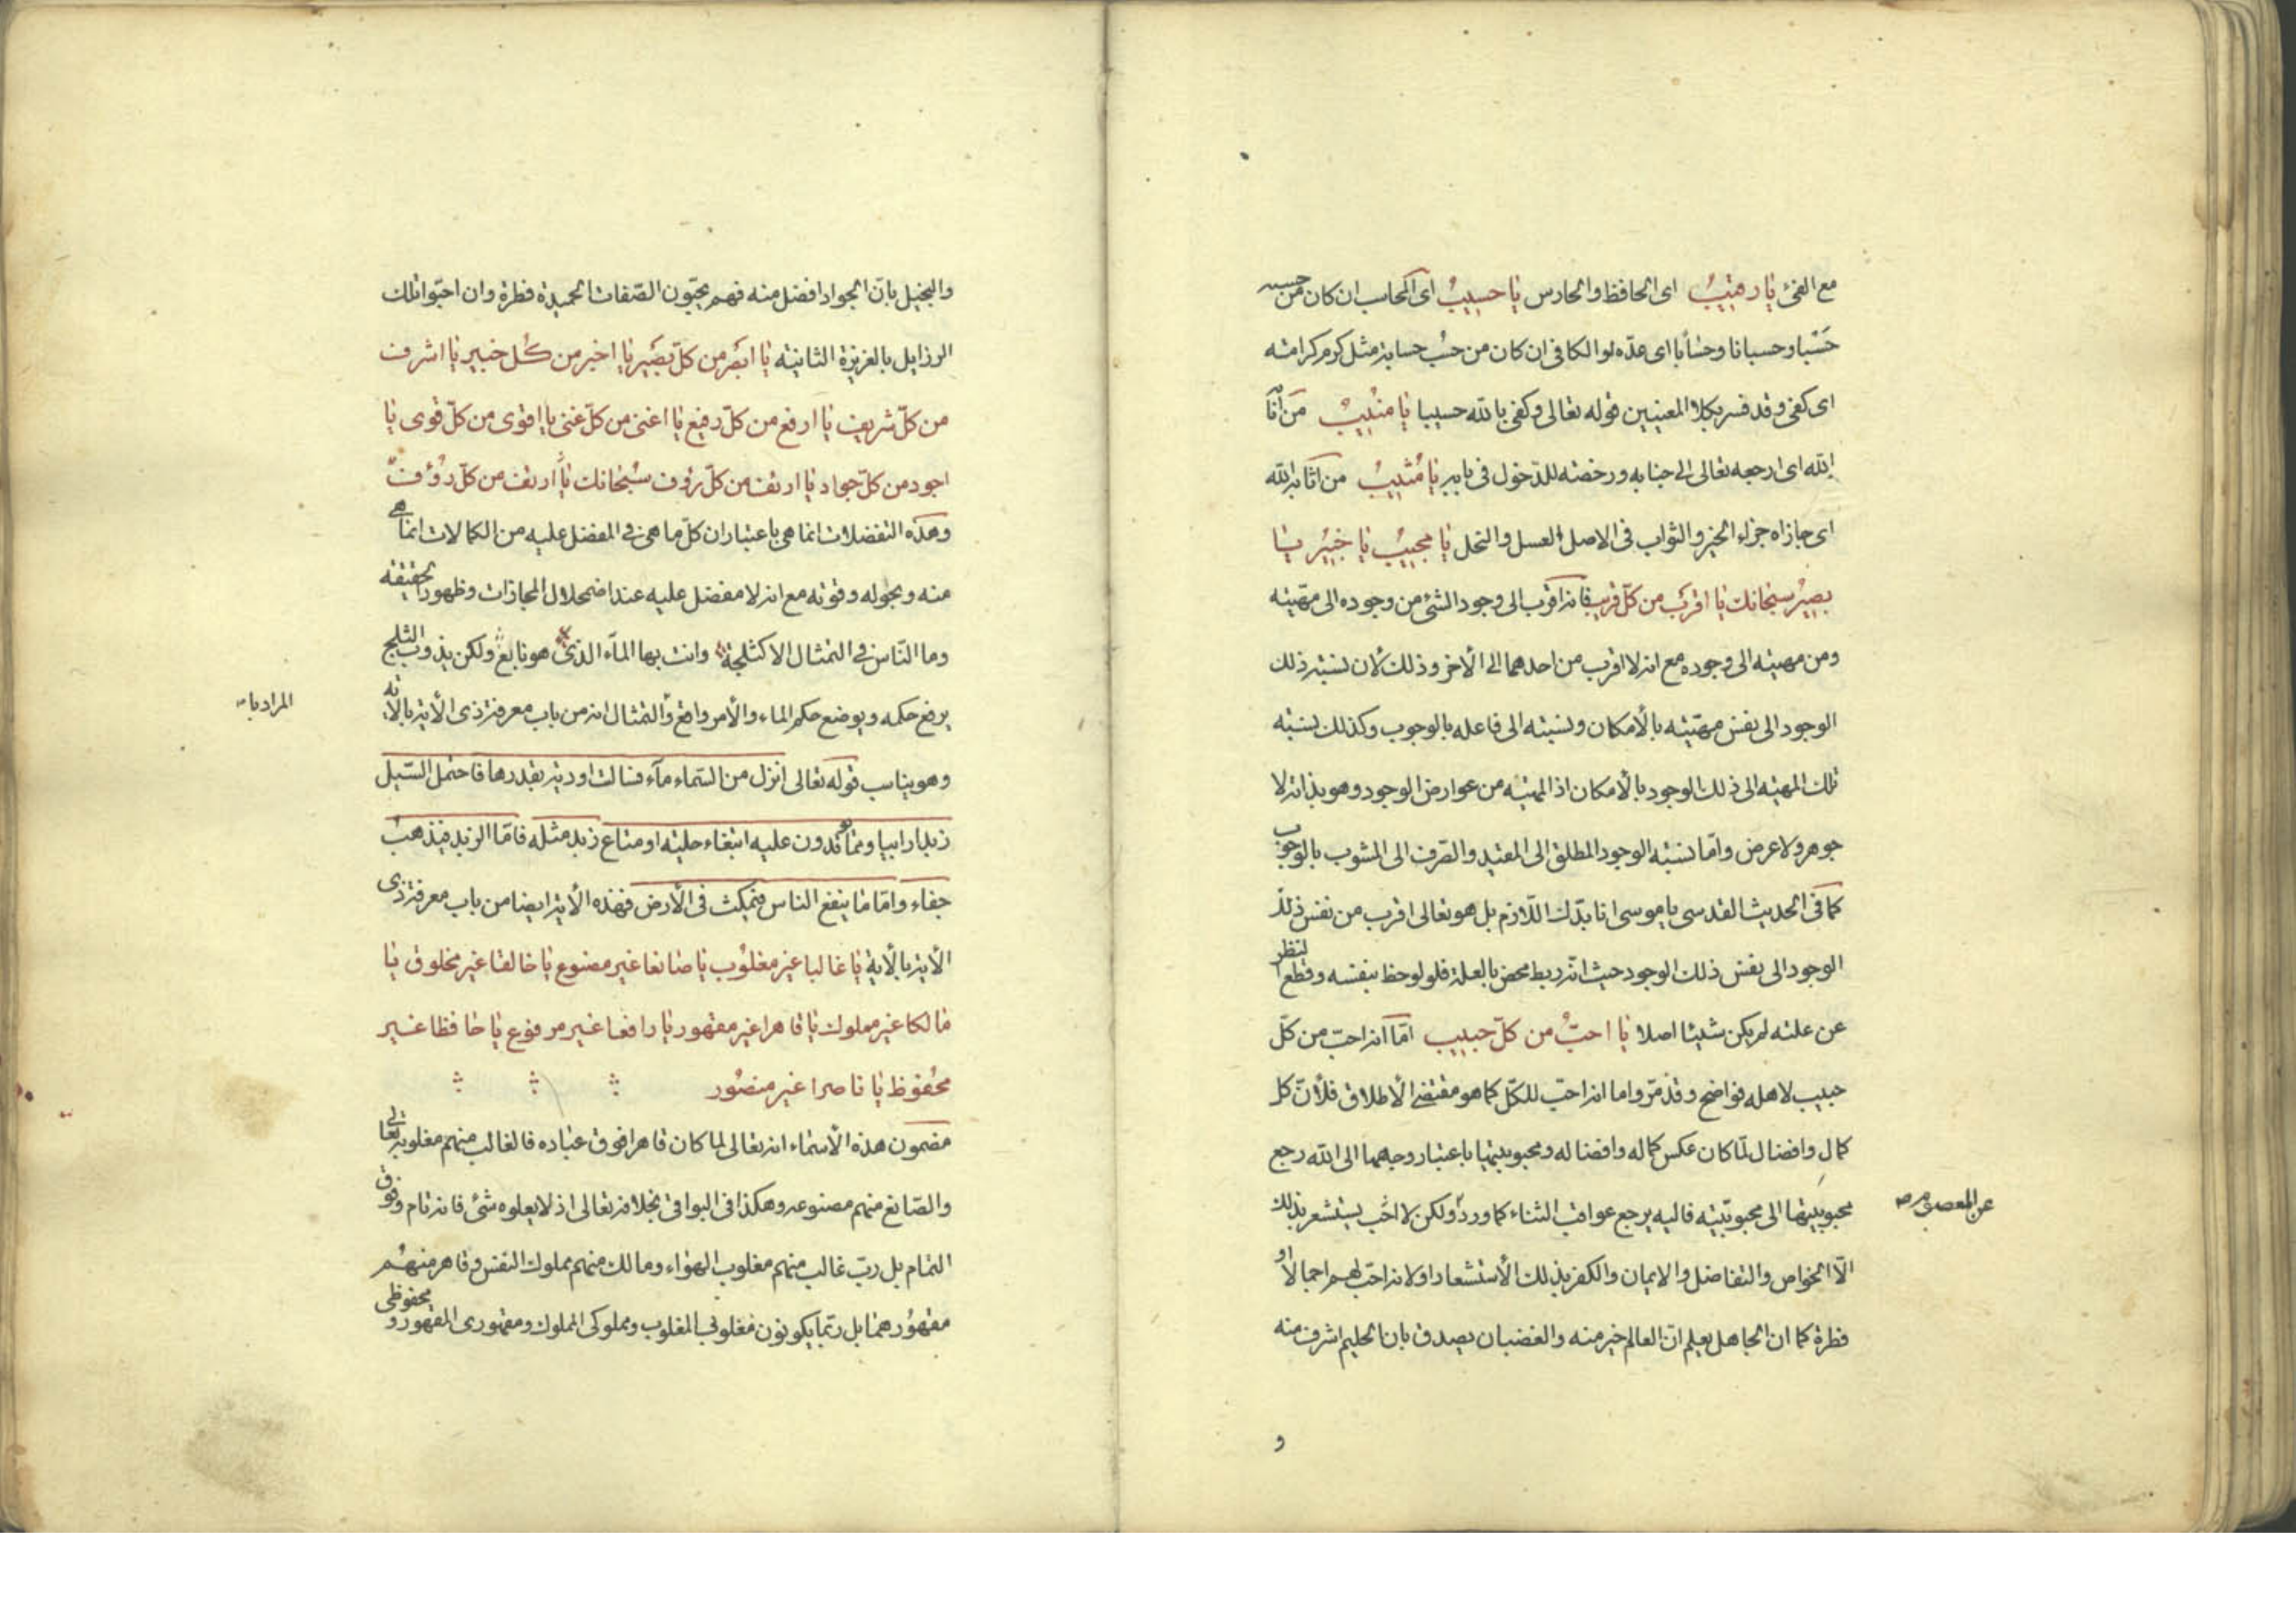 مع الفئ يا رقيب اى الحافظ والحارس يا حسيب اى المحاسب ان كان من حسبه
حسبا وحسبانا وحسابا اى عدّه لو الكافى ان كان من حسب حسابة مثل كرم كرامته
اى كفى وقد فسر بكلا المعنيين قوله تعالى وكفى بالله حسيبا يا منيب من انا
الله اى ارجعه تعالى الى جنابه ورخصته للدّخول فى بابه يا مثيب من اثابه الله
اى جازاه جزاء الخير والثواب فى الاصل العسل والنحل يا مجيب يا خبير يا
بصير سبحانك يا اقرب من كلّ قريب فانه اقرب الى وجود الشئ من وجوده الى مهيّته
ومن مهيته الى وجوده مع انه لا اقرب من احدهما الى الأخر وذلك لأن نسبة ذلك
الوجود الى نفس مهيّته بالأمكان ونسبته الى فاعله بالوجوب وكذلك نسبته
تلك المهيّه الى ذلك الوجود بالأمكان اذ المهيّه من عوارض الوجود وهو بذاته لا
جوهر ولا عرض وامّا نسبته الوجود المطلق الى المقيد والصّرف الى المشوب بالوجوب
كما فى الحديث القدسى يا موسى انا بدّك اللّازم بل هو تعالى اقرب من نفس ذلك
الوجود الى نفس ذلك الوجود حيث انّه ربط محض بالعلة فلو لوحظ بنفسه وقطع النظر
عن علته لم يكن شيئا اصلا يا احبّ من كلّ حبيب امّا انه احبّ من كلّ
حبيب لاهله فواضح وقد مرّ واما انه احبّ للكلّ كما هو مقتضى الأطلاق فلأنّ كل
كمال وافضال لمّا كان عكس كماله وافضاله ومحبوبيتها باعتبار وجههما الى الله رجع
محبوبيتها الى محبوبيّته فاليه يرجع عواقب الثناء كما ورد ولكن لا احب يستشعر بذلك
عن المعصوم ص
الّا الخواص والتفاضل والايمان والكفر بذلك الأستشعار اولا نه احبّ لهم اجمالا او
فطرة كما ان الجاهل يعلم انّ العالم خير منه والغضبان يصدق بان الحليم اشرف منه
و
والبخيل بانّ الجواد افضل منه فهم يحبّون الصّفات الحميدة فطرة وان احبّوا تلك
الرزايل بالغريزة الثانية يا ابصر من كلّ بصير يا اخبر من كلّ خبير يا اشرف
من كلّ شريف يا ارفع من كلّ رفيع يا اغنى من كلّ غنى يا اقوى من كلّ قوى يا
اجود من كلّ جواد يا ارئف من كلّ رؤف سبحانك يا ارئف من كلّ رؤف
وهذه التفضلات انما هى باعتبار ان كلّ ما هى فى المفضل عليه من الكمالات انما هى
منه وبحوله وقوته مع انه لا مفضل عليه عند اضمحلال المجازات وظهور الحقيقه
وما النّاس فى التمثال الا كثلجة وانت بها المآء الذى هو نابع ولكن يذوب الثلج
يرفع حكمه ويوضع حكم الماء والأمر واقع والتمثال انه من باب معرفة ذى الأية بالأية
المراد بات
وهو يناسب قوله تعالى انزل من السّماء مآء فسالت اودية بقدرها فاحتمل السّيل
زبدا رابيا وممّا توقدون عليه ابتغاء حلية او متاع زبد مثله فامّا الزبد فيذهب
جفاء وامّا ما ينفع الناس فيمكث فى الأرض فهذه الأية ايضا من باب معرفة ذى
الأية بالأية يا غالبا غير مغلوب يا صانعا غير مصنوع يا خالقا غير مخلوق يا
مالكا غير مملوك يا قاهرا غير مقهور يا رافعا غير مرفوع يا حافظا غير
محفوظ يا ناصرا غير منصور
مضمون هذه الأسماء انه تعالى لما كان قاهرا فوق عباده فالغالب منهم مغلوبه تعالى
والصّانع منهم مصنوعه وهكذا فى البواقى بخلافه تعالى اذ لا يعلوه شئ فانه تام وفوق
التمام بل ربّ غالب منهم مغلوب الهواء ومالك منهم مملوك النفس وقاهر منهم
مقهورهما بل ربّما يكونون مغلوبى المغلوب ومملوكى المملوك ومقهورى المقهور ومحفوظى